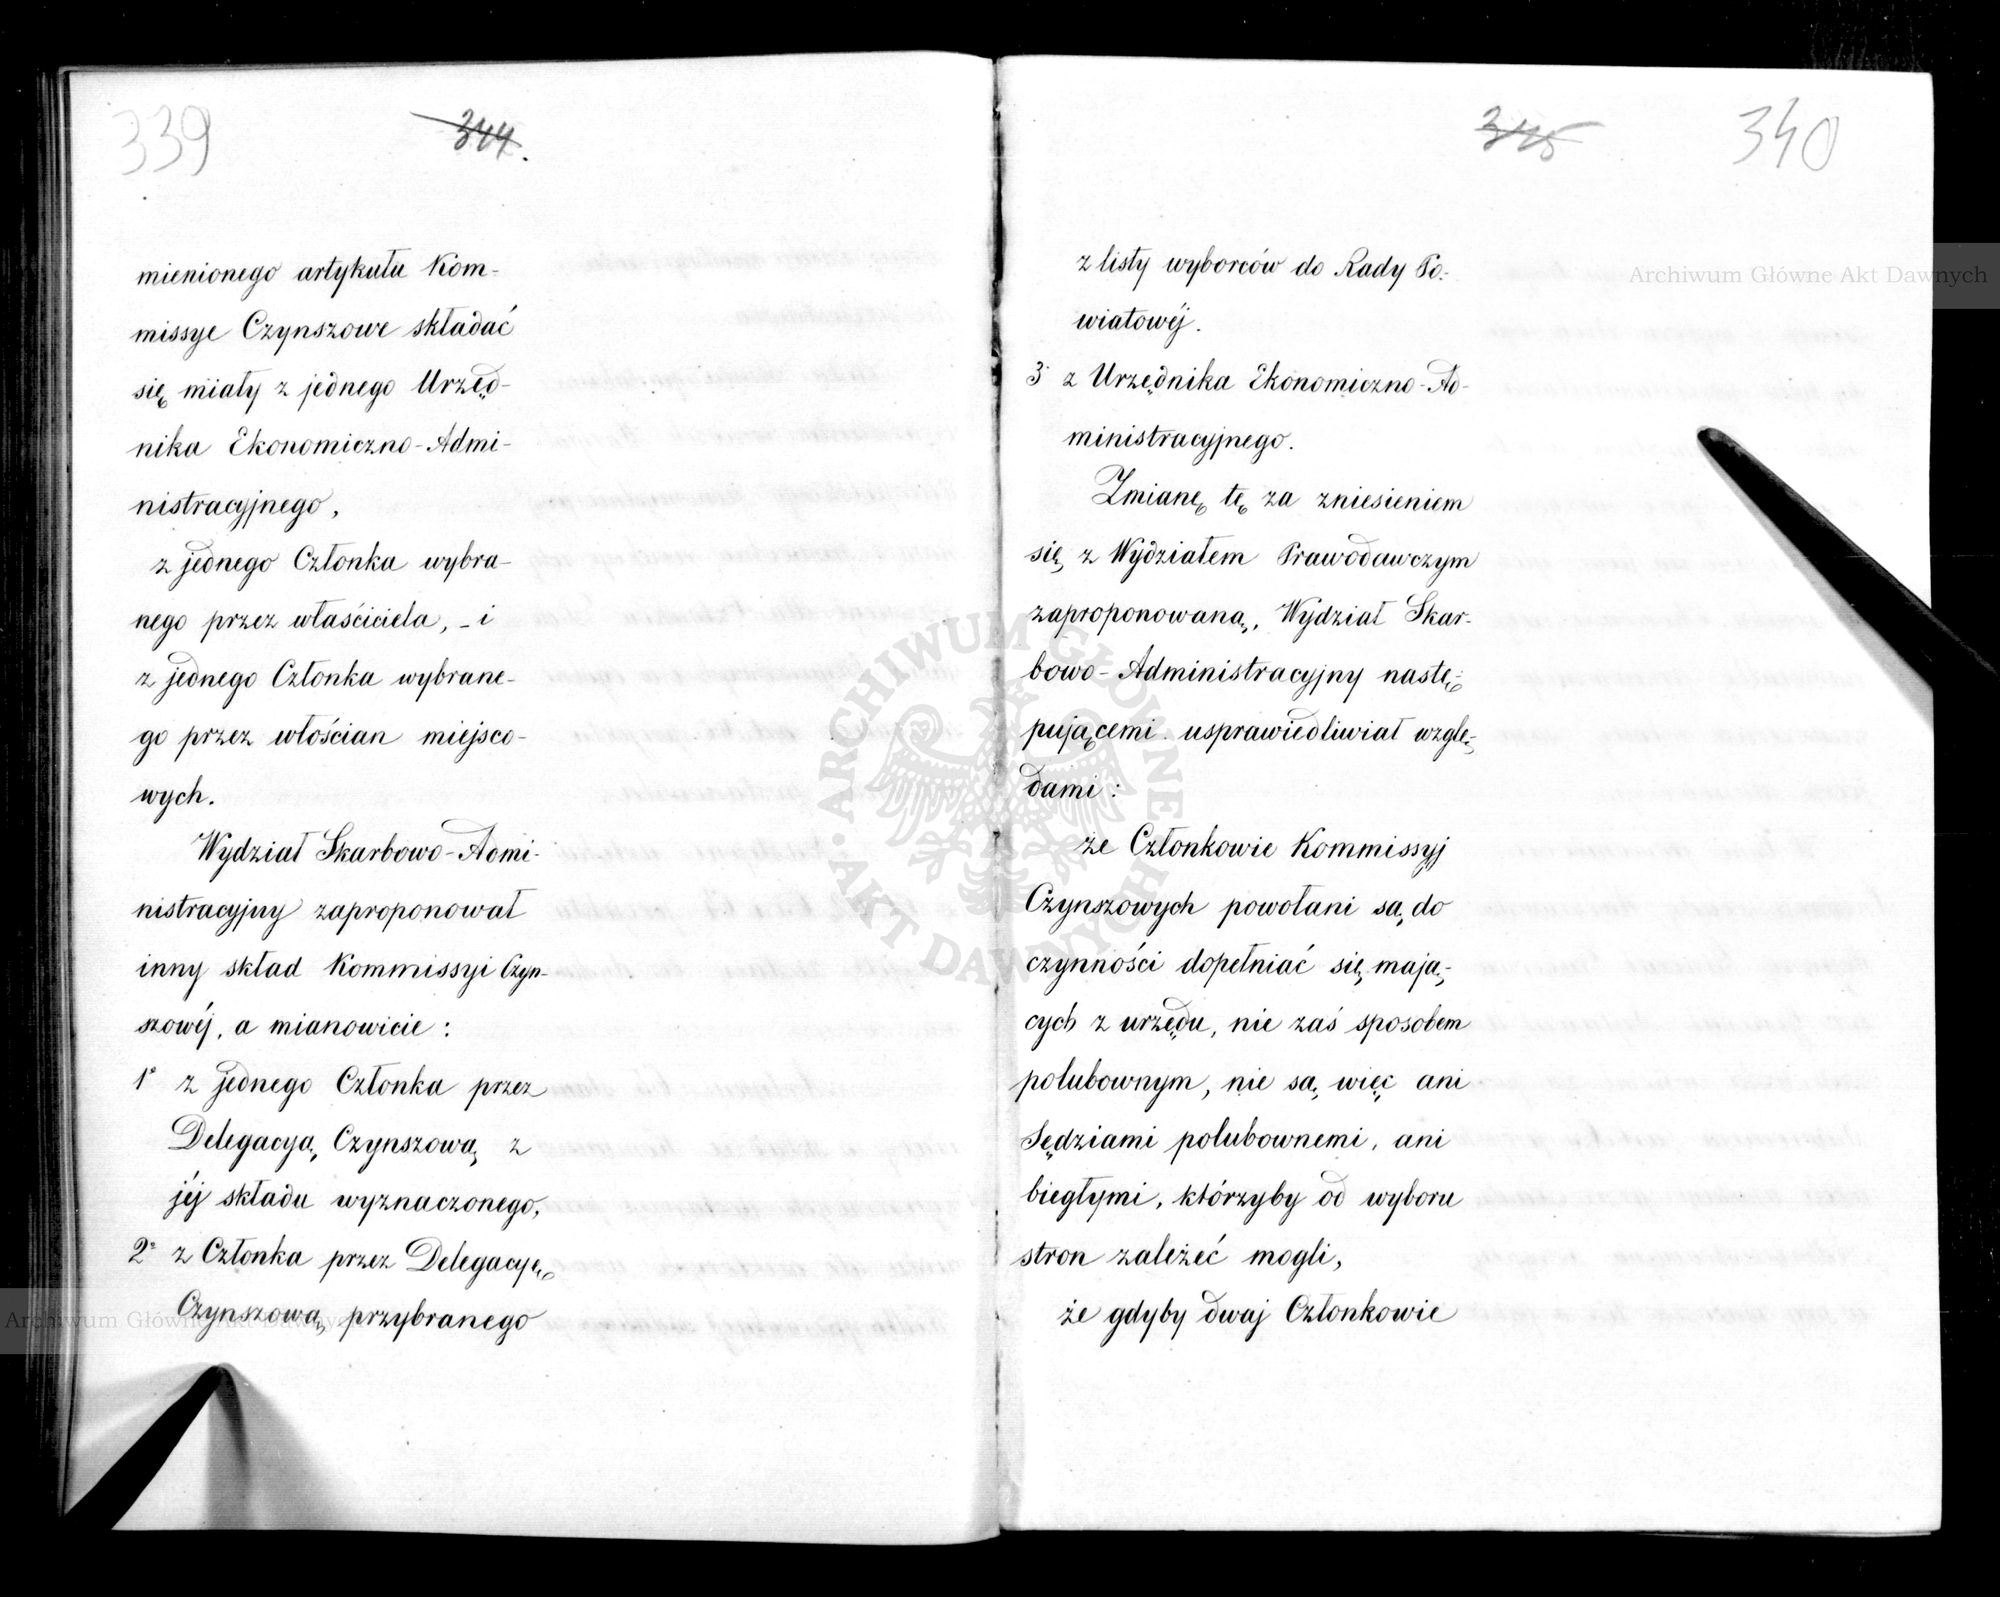 339
344.
mienionego artykułu Kom-
missye Czynszowe składać
się miały z jednego Urzęd-
nika Ekonomiczno-Admi-
nistracyjnego,
z jednego Członka wybra-
nego przez właściciela, - i
z jednego Członka wybrane-
go przez włościan miejsco-
wych.
Wydział Skarbowo-Admi-
nistracyjny zaproponował
inny skład Kommissyi Czyn-
szowéj, a mianowicie:
1° z jednego Członka przez
Delegacyą Czynszową z
jéj składu wyznaczonego,
2° z Członka przez Delegacyę
Czynszową przybranego
345
340
z listy wyborców do Rady Po-
wiatowéj.
3° z Urzędnika Ekonomiczno-Ad-
ministracyjnego.
Zmianę tę za zniesieniem
się z Wydziałem Prawodawczym
zaproponowaną, Wydział Skar-
bowo-Administracyjny nastę-
pującemi usprawiedliwiał wzglę-
dami:
że Członkowie Kommissyj
Czynszowych powołani są do
czynności dopełniać się mają-
cych z urzędu, nie zaś sposobem
polubownym, nie są więc ani
Sędziami polubownemi, ani
biegłymi, którzyby od wyboru
stron zależeć mogli,
że gdyby dwaj Członkowie
Archiwum Główne Akt Dawnych
Archiwum Główne Akt Dawnych
ARCHIWUM GŁÓWNE AKT DAWNYCH